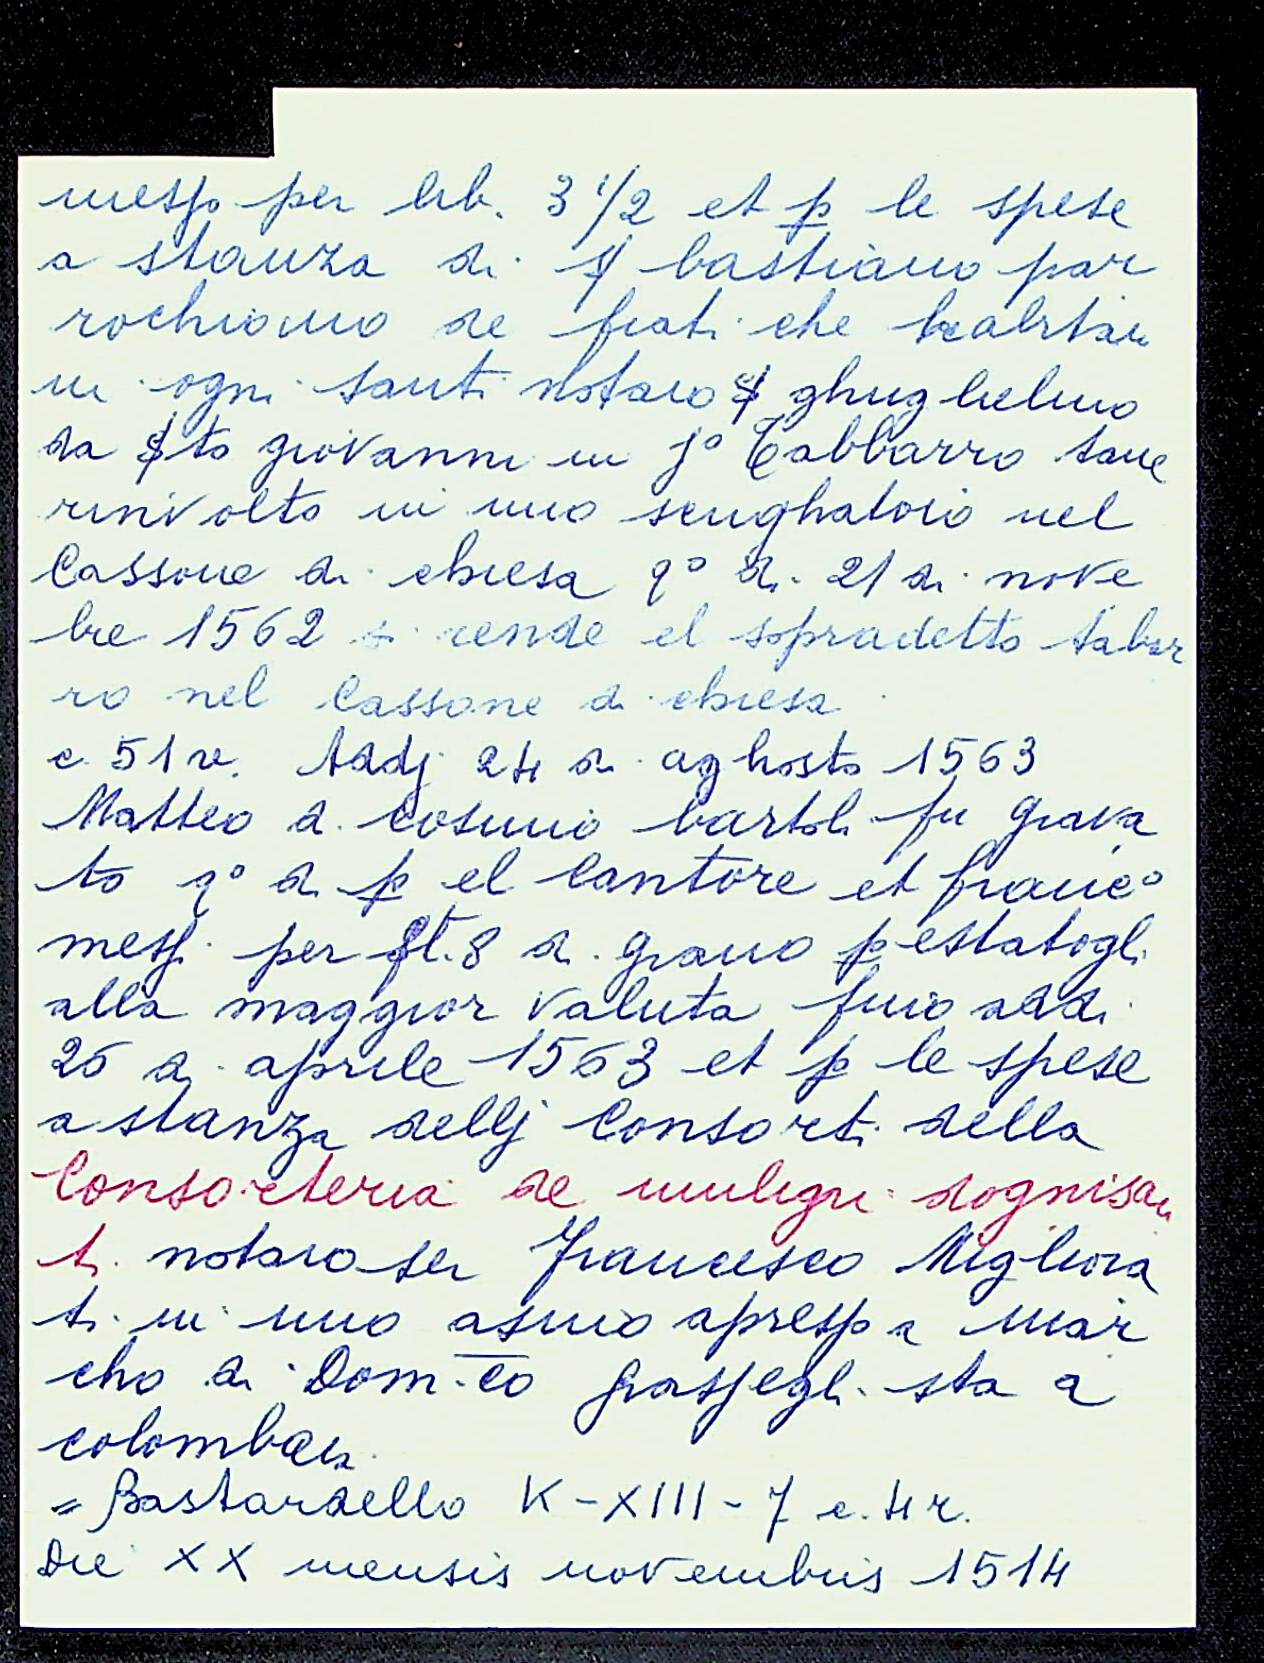 messo per lib. 3 1/2 et p le spese
a stanza di S bastiano par
rochiano de frati che habitan
in ogni santi notaro S ghuglielmo
da S to giovanni in j° Tabbarro tane
rinvolto in uno sciughatoio nel
Cassone di chiesa q° di 21 di nove
bre 1562 si rende el sopradetto tabar
ro nel Cassone di chiesa
c. 51 v. Addj 24 di aghosto 1563
Matteo di Cosimo bartoli fu grava
to q° di p el Cantore et franc°
messo per st. 8 di grano prestatogli
alla maggior valuta fino addi
26 di aprile 1563 et p le spese
a stanza dellj Consorti della
Consorteria de muligni dognisan
ti notaro ser francesco Migliora
ti in uno asino apresso a mar
cho di Dom-co grassegli sta a
colombaia
= Bastardello K - XIII - 7 c. 4 r.
Die XX mensis novembris 1514